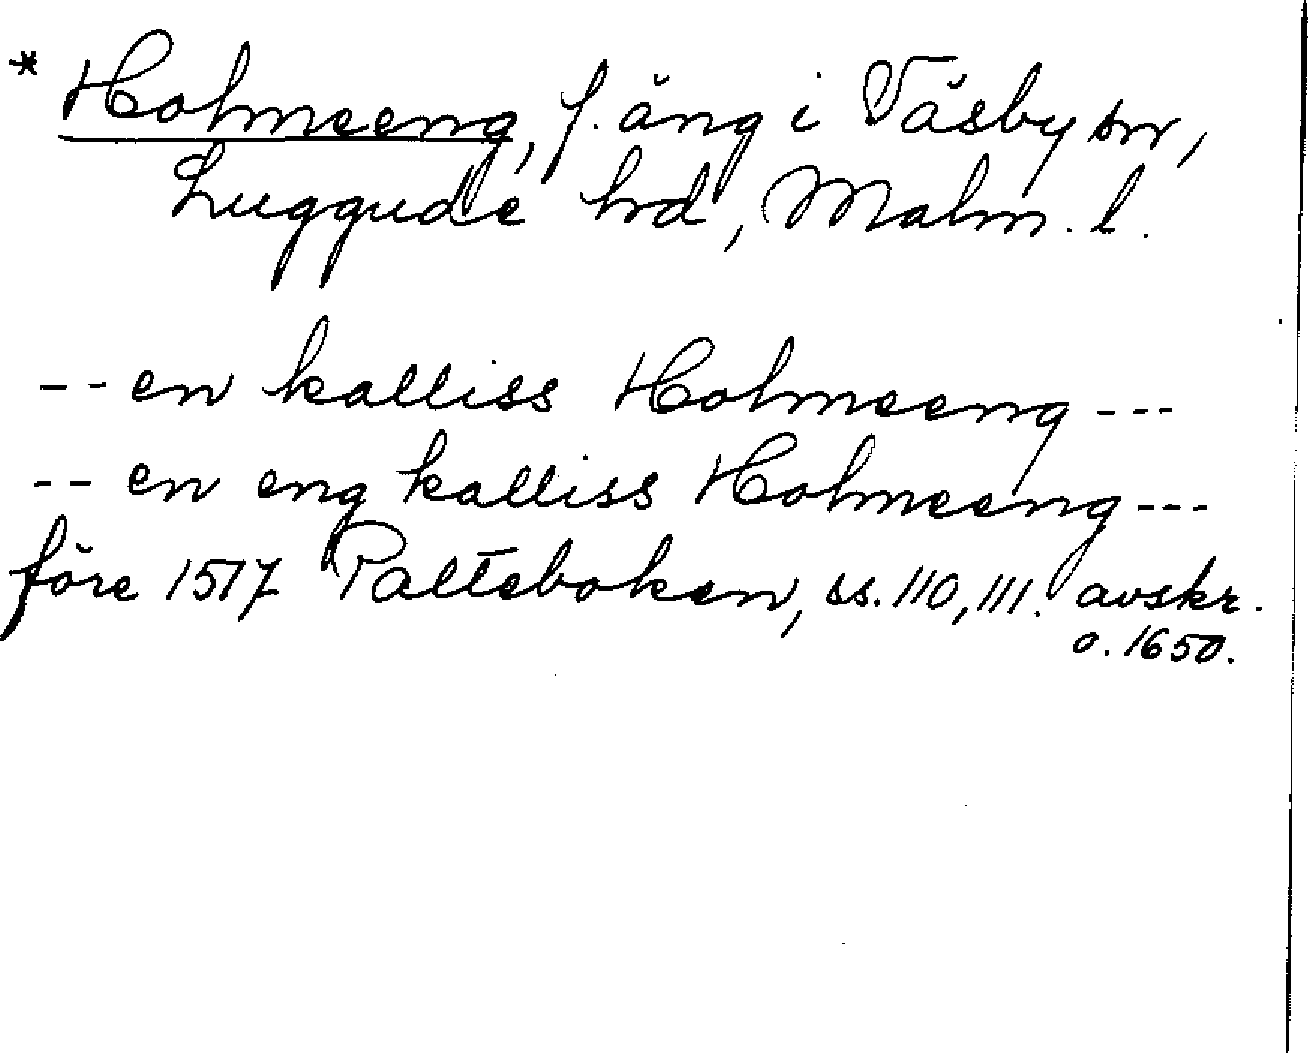 * Holmeeng, f. äng i Väsby sn,
Luggude hd, Malm. l.
-- en kalliss Holmeeng ---
-- en eng kalliss Holmeeng ---
före 1517 Palteboken, ss. 110, 111. avskr.
o. 1650.